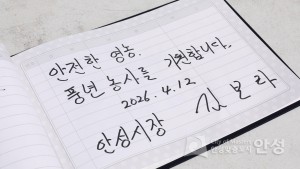 안전한 영농.
풍년 농사를 기원합니다.
2026. 4. 12
안성시장 김보라
안성